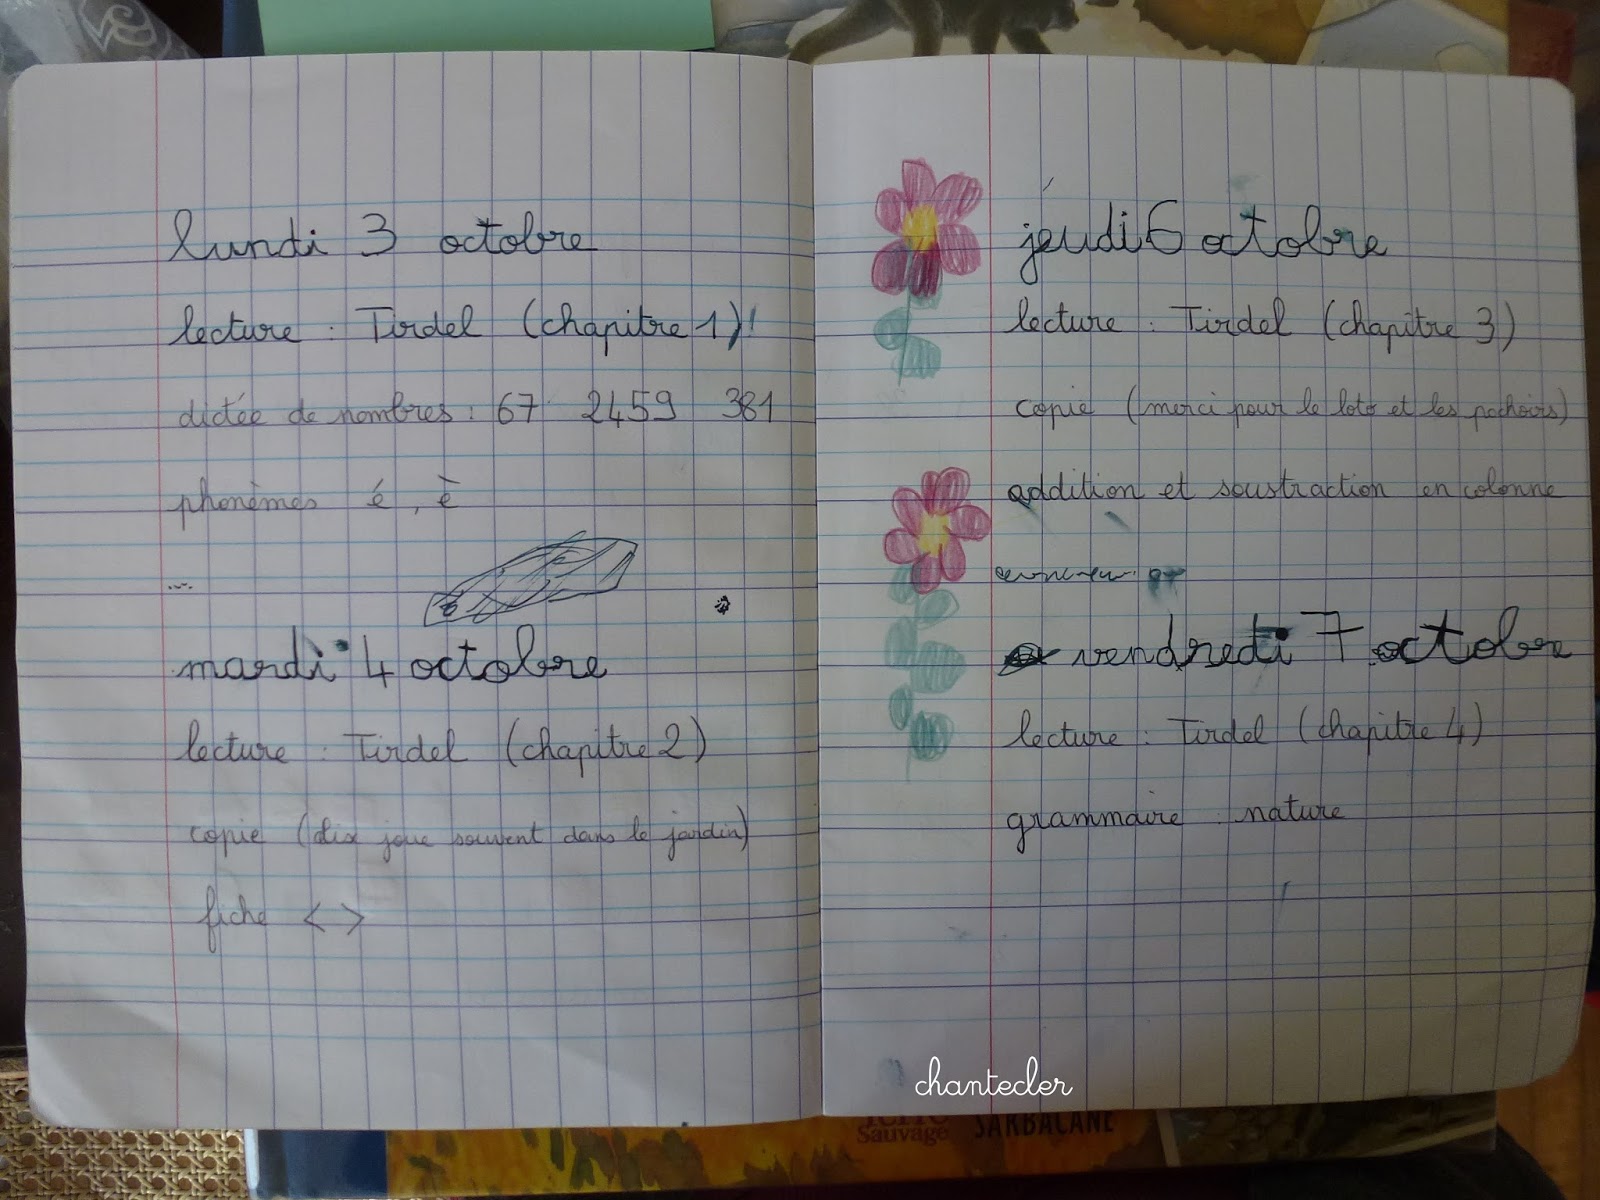 lundi 3 octobre
lecture : Tirdel (chapitre 1)
dictée de nombres : 67 2459 381
phonèmes é, è
...
mardi 4 octobre
lecture : Tirdel (chapitre 2)
copie (dix joue souvent dans le jardin)
fiche < >
jeudi 6 octobre
lecture : Tirdel (chapitre 3)
copie (merci pour le loto et les pochoirs)
addition et soustraction en colonne
vendredi 7 octobre
lecture : Tirdel (chapitre 4)
grammaire : nature
chantecler
Terre
Sauvage
SARBACANE